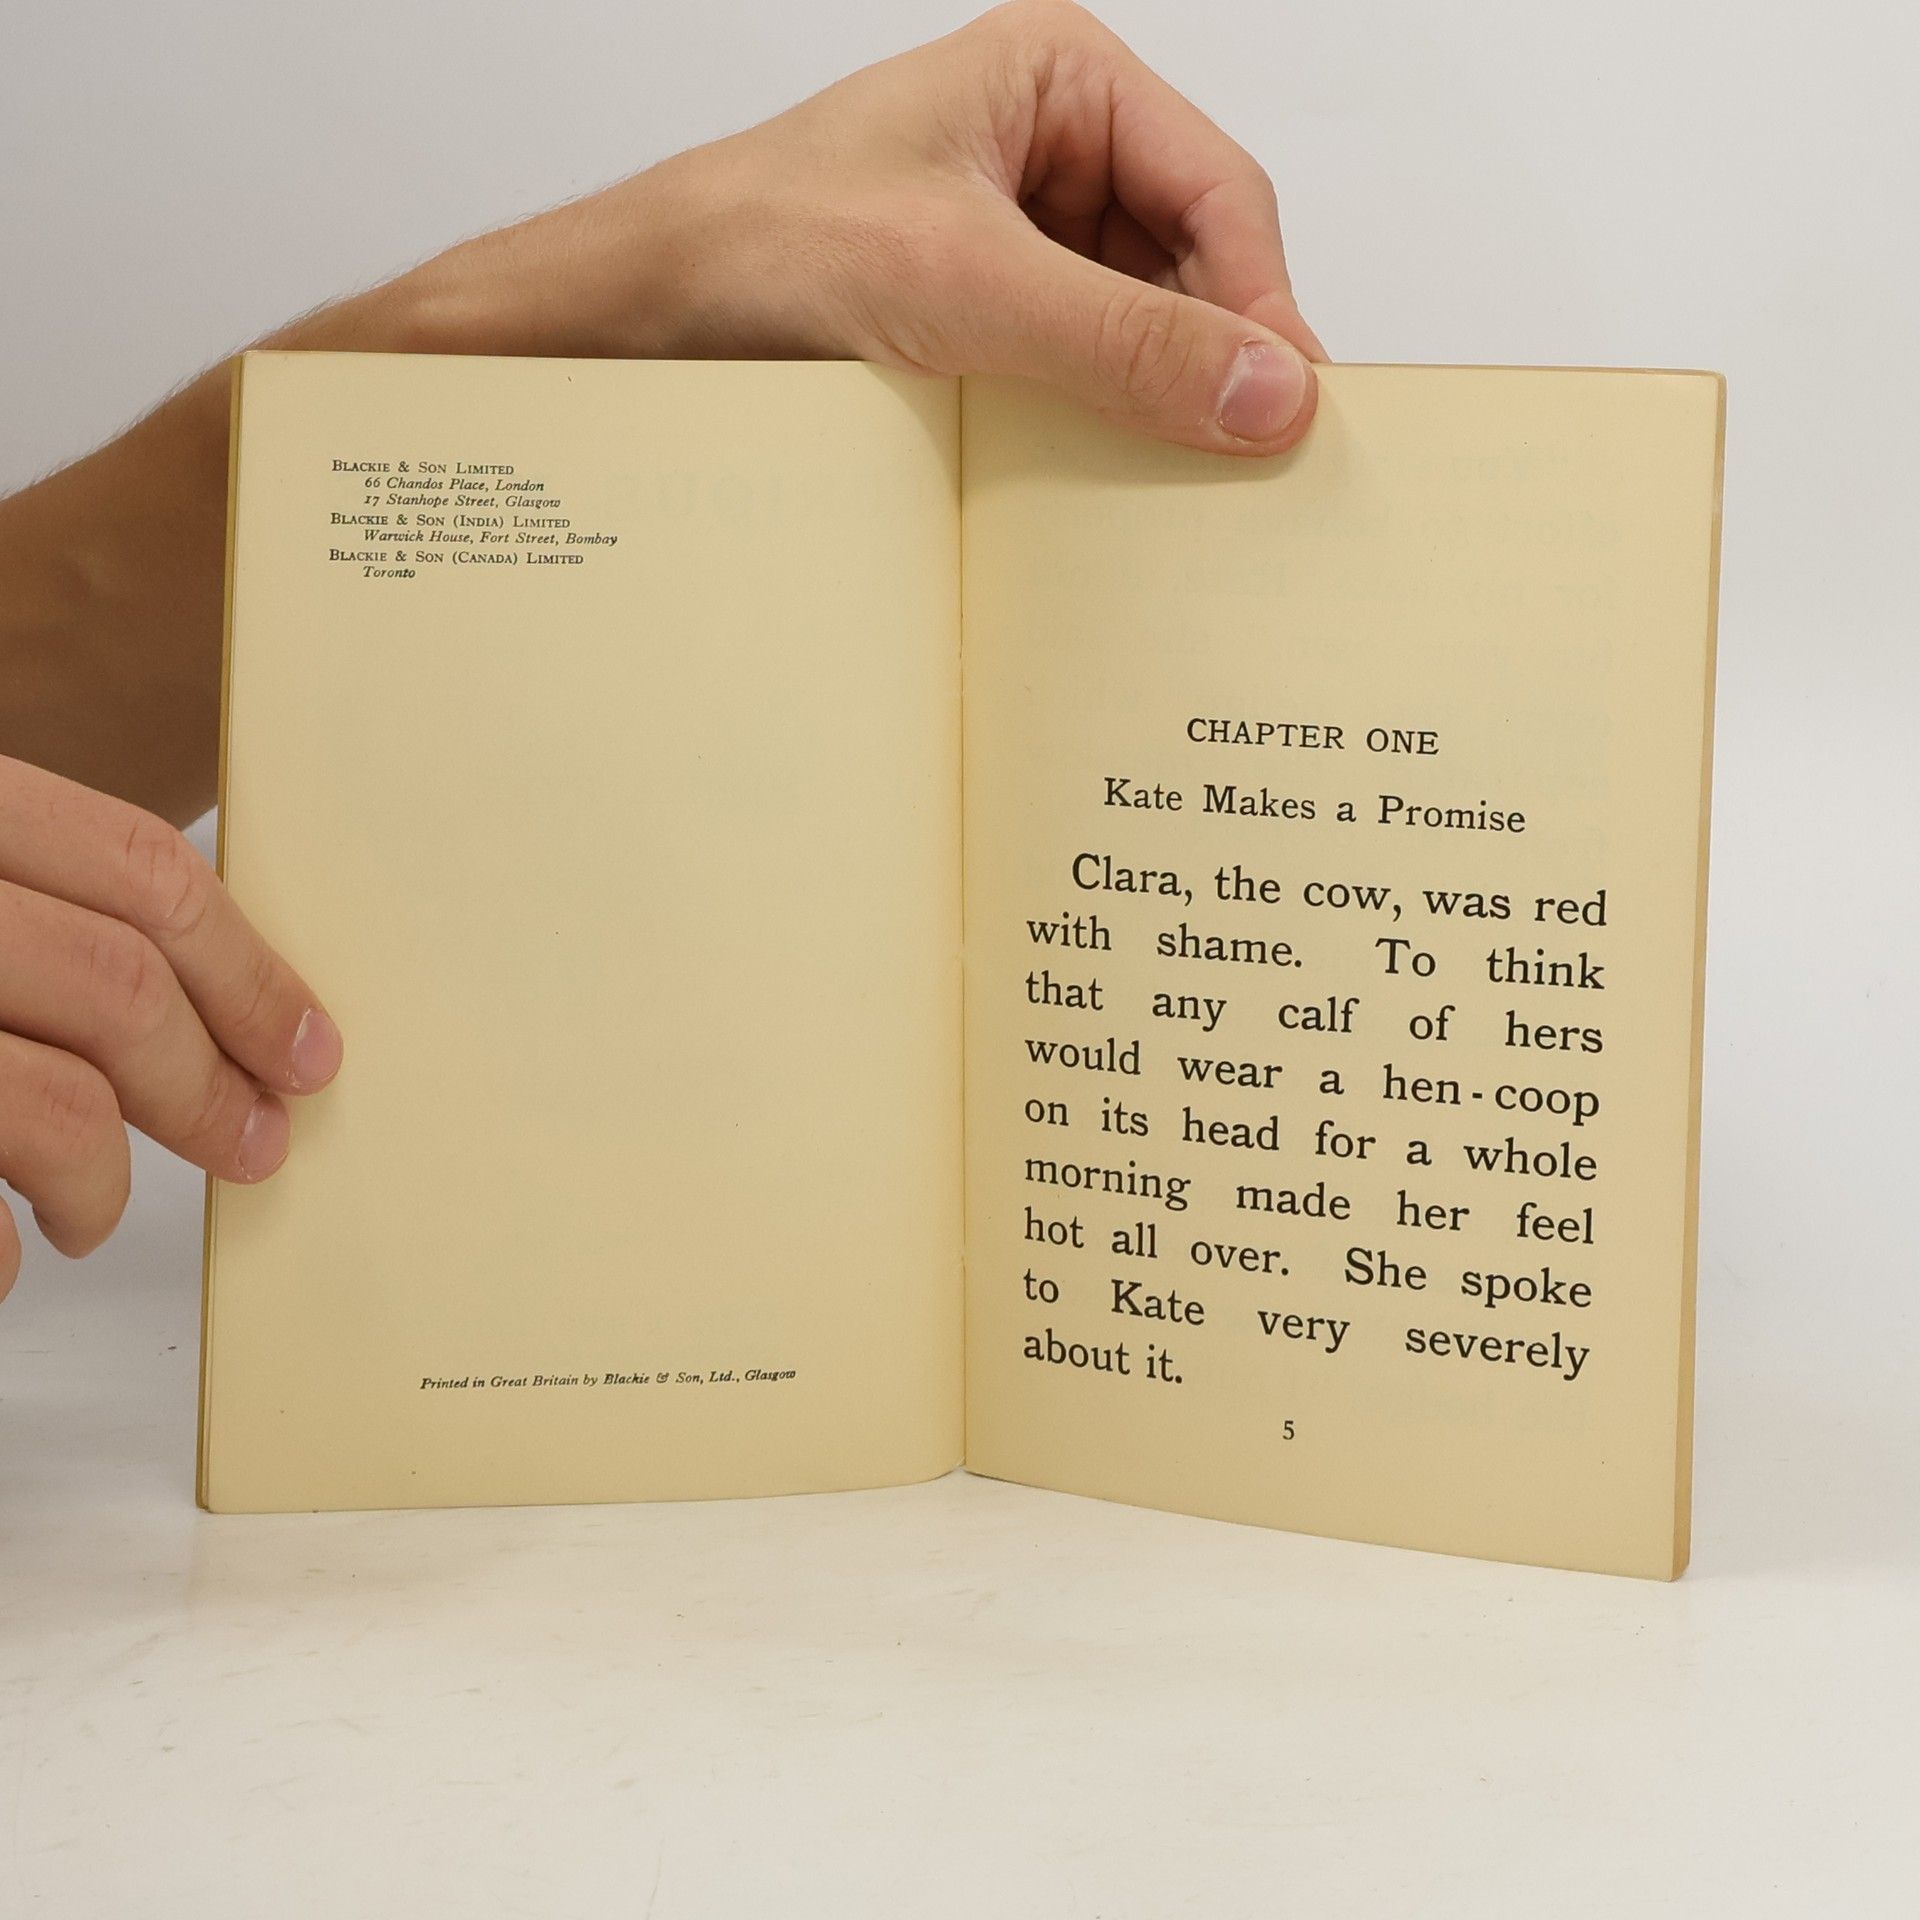 Blackie & Son Limited
66 Chandos Place, London
17 Stanhope Street, Glasgow
Blackie & Son (India) Limited
Warwick House, Fort Street, Bombay
Blackie & Son (Canada) Limited
Toronto
Printed in Great Britain by Blackie & Son, Ltd., Glasgow
CHAPTER ONE
Kate Makes a Promise
Clara, the cow, was red
with shame. To think
that any calf of hers
would wear a hen-coop
on its head for a whole
morning made her feel
hot all over. She spoke
to Kate very severely
about it.
5